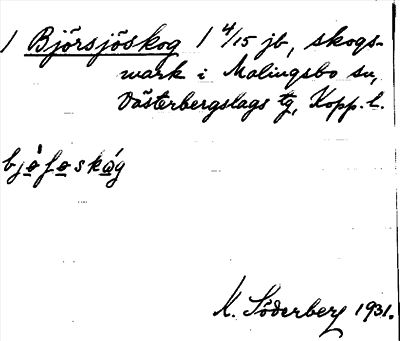 1 Björsjöskog 1 4/15 jb, skogs-
mark i Malingsbo sn,
Västerbergslags tg, Kopp. l.
bjø̀ʃøskǻg
K. Söderberg 1931.